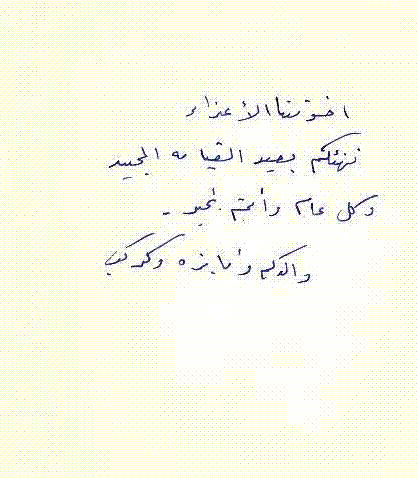 اخوتنا الأعزاء
نهنئكم بعيد القيامه المجيد
وكل عام وأنتم بخير .
والدكم